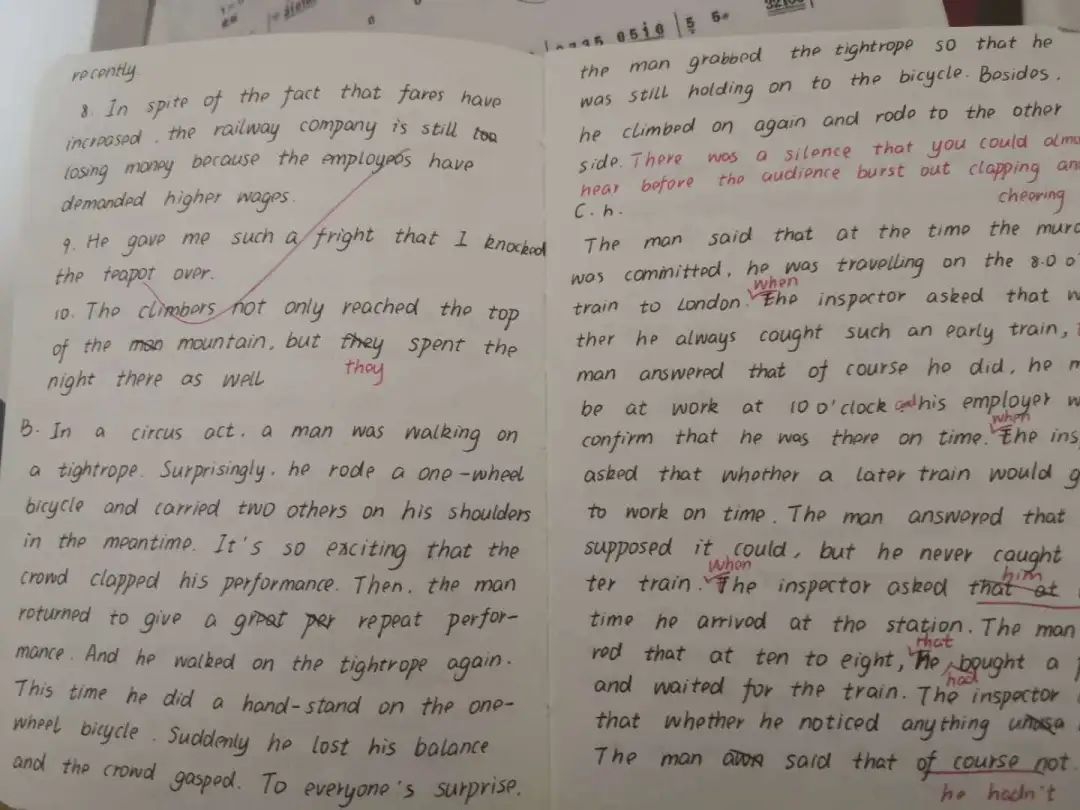 recently.
8. In spite of the fact that fares have
increased, the railway company is still too
losing money because the employees have
demanded higher wages.
9. He gave me such a fright that I knocked
the teapot over.
10. The climbers not only reached the top
of the man mountain, but they spent the
they
night there as well
B. In a circus act, a man was walking on
a tightrope. Surprisingly, he rode a one-wheel
bicycle and carried two others on his shoulders
in the meantime. It's so exciting that the
crowd clapped his performance. Then, the man
returned to give a great per repeat perfor-
mance. And he walked on the tightrope again.
This time he did a hand-stand on the one-
wheel bicycle. Suddenly he lost his balance
and the crowd gasped. To everyone's surprise,
0515i0 | 5 5.
the man grabbed the tightrope so that he
was still holding on to the bicycle. Besides,
he climbed on again and rode to the other
side. There was a silence that you could almo
hear before the audience burst out clapping and
cheering
C. h.
The man said that at the time the murd
was committed, he was travelling on the 8.0 o'
when
train to London. The inspector asked that w
ther he always cought such an early train,
man answered that of course he did, he m
be at work at 10 o'clock and his employer w
when
confirm that he was there on time. The ins
asked that whether a later train would g
to work on time. The man answered that
supposed it could, but he never caught
when him
ter train. The inspector asked that at
time he arrived at the station. The man
that
red that at ten to eight, He bought a
had
and waited for the train. The inspector
that whether he noticed anything unusa
The man awn said that of course not.
he hadn't